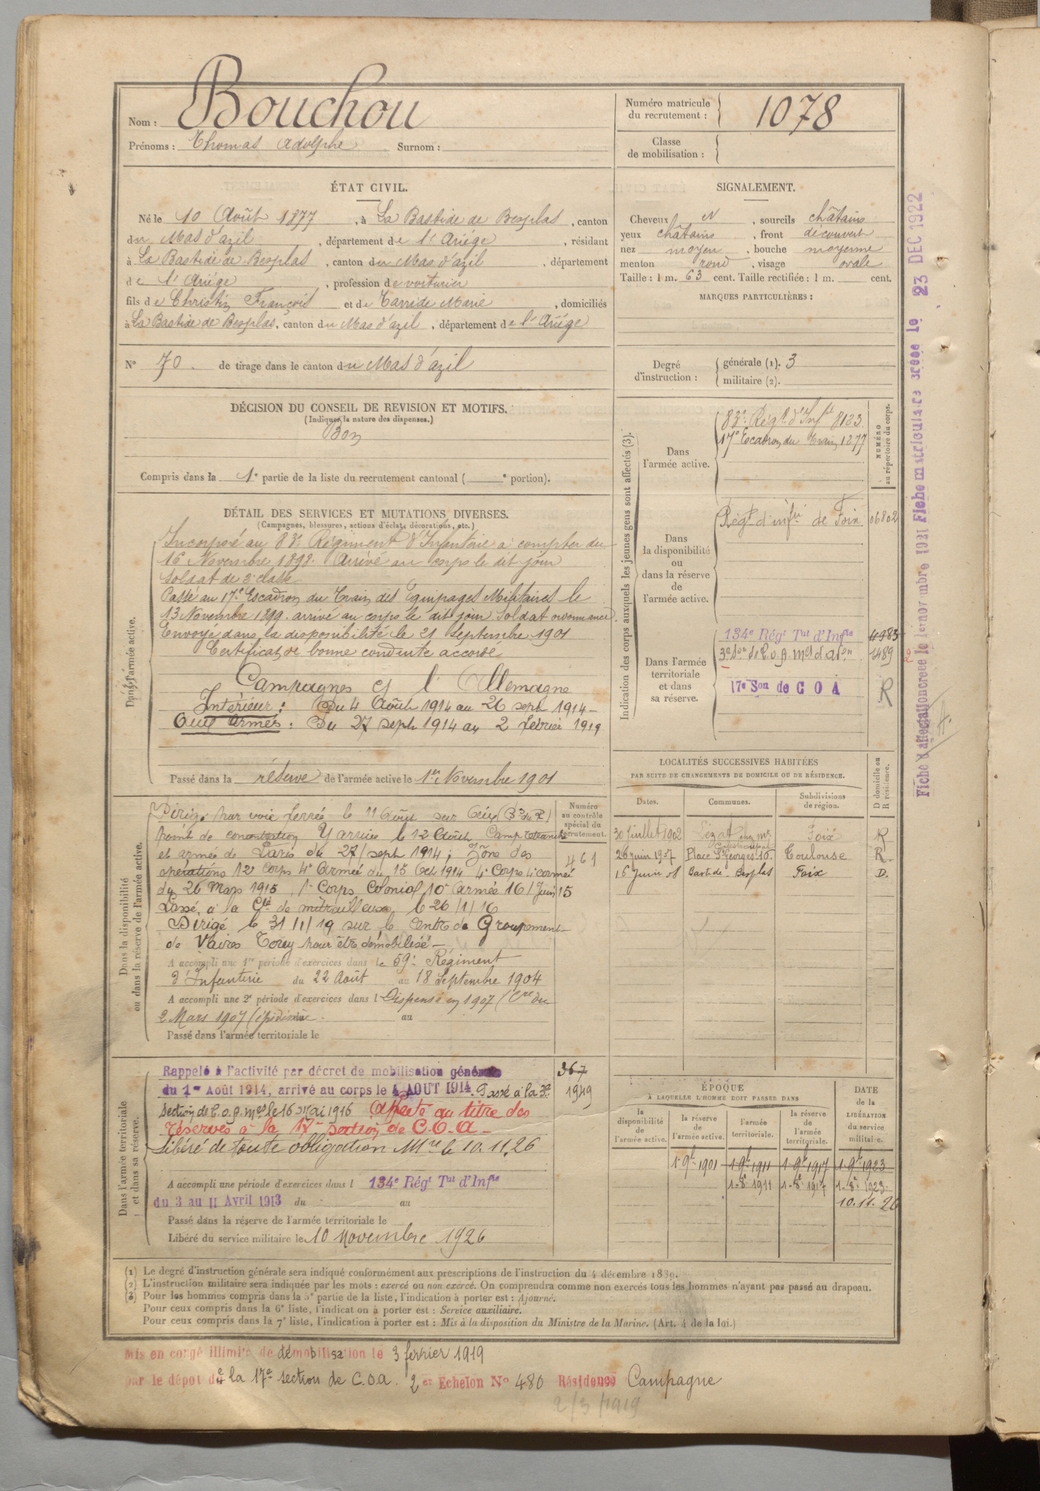 Nom : Bouchou
Prénoms : Thomas Adolphe Surnom :
Numéro matricule du recrutement : 1078
Classe de mobilisation :
ÉTAT CIVIL.
Né le 10 Août 1877, à La Bastide de Besplas, canton
du Mas d'azil, département de l'Ariège, résidant
à La Bastide de Besplas, canton du Mas d'azil, département
de l'Ariège, profession de voiturier
fils de Christin François et de Tarride Marie, domiciliés
à La Bastide de Besplas, canton du Mas d'azil, département de l'Ariège
N° 70 de tirage dans le canton du Mas d'azil
SIGNALEMENT.
Cheveux N, sourcils châtains
yeux châtains, front découvert
nez moyen, bouche moyenne
menton rond, visage ovale
Taille : 1 m. 63 cent. Taille rectifiée : 1 m. cent.
MARQUES PARTICULIÈRES :
Degré d'instruction : générale (1). 3
militaire (2).
DÉCISION DU CONSEIL DE REVISION ET MOTIFS.
(Indiquer la nature des dispenses.)
Bon
Compris dans la 1e partie de la liste du recrutement cantonal ( e portion).
DÉTAIL DES SERVICES ET MUTATIONS DIVERSES.
(Campagnes, blessures, actions d'éclat, décorations, etc.)
Dans l'armée active.
Incorporé au 83e Régiment d'Infanterie à compter du
16 Novembre 1898. Arrivé au corps le dit jour
soldat de 2e classe
Passé au 17e Escadron du Train des Equipages Militaires le
13 Novembre 1899. arrivé au corps le dit jour Soldat ordonnance
Envoyé dans la disponibilité le 21 Septembre 1901
Certificat de bonne conduite accordé
Campagnes c/ l'Allemagne
Intérieur : Du 4 Août 1914 au 26 sept 1914 -
Aux armées : Du 27 sept 1914 au 2 février 1919
Passé dans la réserve de l'armée active le 1er Novembre 1901
Indication des corps auxquels les jeunes gens sont affectés (3).
NUMÉRO au répertoire du corps.
Dans l'armée active.
83e Régt d'Infie 8123
17e Escadron du Train 1877
Dans la disponibilité ou dans la réserve de l'armée active.
Régt d'infie de Foix 06802
Dans l'armée territoriale et dans sa réserve.
134e Régt Tal d'Infie
1489
17e Son de COA R
Fiche matriculaire créée le 23 DEC 1922
LOCALITÉS SUCCESSIVES HABITÉES
PAR SUITE DE CHANGEMENTS DE DOMICILE OU DE RÉSIDENCE.
Dates. Communes. Subdivisions de région. D domicile ou R résidence.
30 Juillet 1902 Foix R
26 juin 1907 Place St Georges 10. Toulouse R.
15 Juin 08 Bastide Besplas Foix D.
Dans la disponibilité ou dans la réserve de l'armée active.
Numéro au contrôle spécial du recrutement.
461
Dirigé par voie ferrée le 11 Août sur
Y arrive le 12 Août. Camp retranché
et armée de Paris du 27 sept 1914; Zone des
opérations 12e Corps 4e Armée du 15 Oct 1914 4e Corps 4e armée
du 26 Mars 1915 1er Corps Colonial 10e armée 16 Juin 15
Passé à la Cie de mitrailleuses le 26/1/16
Dirigé le 31/1/19 sur le Centre de Groupement
de Vaires Torcy pour être démobilisé -
A accompli une 1re période d'exercices dans le 59e Régiment
d'Infanterie du 22 Août au 18 Septembre 1904
A accompli une 2e période d'exercices dans l Dispensé en 1907 (Cre du
2 Mars 1907 au
Passé dans l'armée territoriale le
Dans l'armée territoriale et dans sa réserve.
Rappelé à l'activité par décret de mobilisation générale
du 1er Août 1914, arrivé au corps le 4 AOUT 1914. Passé à la 3e
Section de C.o.a. le 16 mai 1916 Affecté au titre des
réserves à la 17e section de C.O.A -
Libéré de toute obligation Mre le 10.11.26
367
1949
A accompli une période d'exercices dans l 134e Régt Tal d'Infie
du 3 au 11 Avril 1913 du au
Passé dans la réserve de l'armée territoriale le
Libéré du service militaire le 10 Novembre 1926
ÉPOQUE
À LAQUELLE L'HOMME DOIT PASSER DANS
la disponibilité de l'armée active. la réserve de l'armée active. l'armée territoriale. la réserve de l'armée territoriale.
DATE de la LIBÉRATION du service militaire.
1.9bre 1901 1.9bre 1911 1.9bre 1917 1.9bre 1923
10.11.26
(1) Le degré d'instruction générale sera indiqué conformément aux prescriptions de l'instruction du 4 décembre 1889.
(2) L'instruction militaire sera indiquée par les mots : exercé ou non exercé. On comprendra comme non exercés tous les hommes n'ayant pas passé au drapeau.
(3) Pour les hommes compris dans la 2e partie de la liste, l'indication à porter est : Ajourné.
Pour ceux compris dans la 6e liste, l'indication à porter est : Service auxiliaire.
Pour ceux compris dans la 7e liste, l'indication à porter est : Mis à la disposition du Ministre de la Marine. (Art. 4 de la loi.)
Mis en congé illimité de démobilisation le 3 février 1919
par le dépôt de la 17e section de C.O.A. 2er Echelon N° 480 Résidence Campagne
2/3/1919